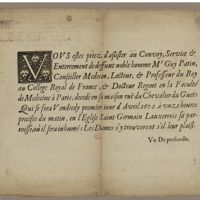 VOUS estes priez d'assister au Convoy, Service &
Enterrement de deffunt noble homme Mᵉ Guy Patin,
Conseiller Medecin, Lecteur, & Professeur du Roy
au College Royal de France, & Docteur Regent en la Faculté
de Medecine à Paris, decedé en sa maison ruë du Chevalier du Guet:
Qui se fera Vendredy premier jour d'Avril 1672 à onze heures
precises du matin, en l'Eglise Saint Germain Lauxerrois sa par-
roisse, où il sera inhumé: Les Dames s'y trouveront s'il leur plaist.
Vn De profundis.